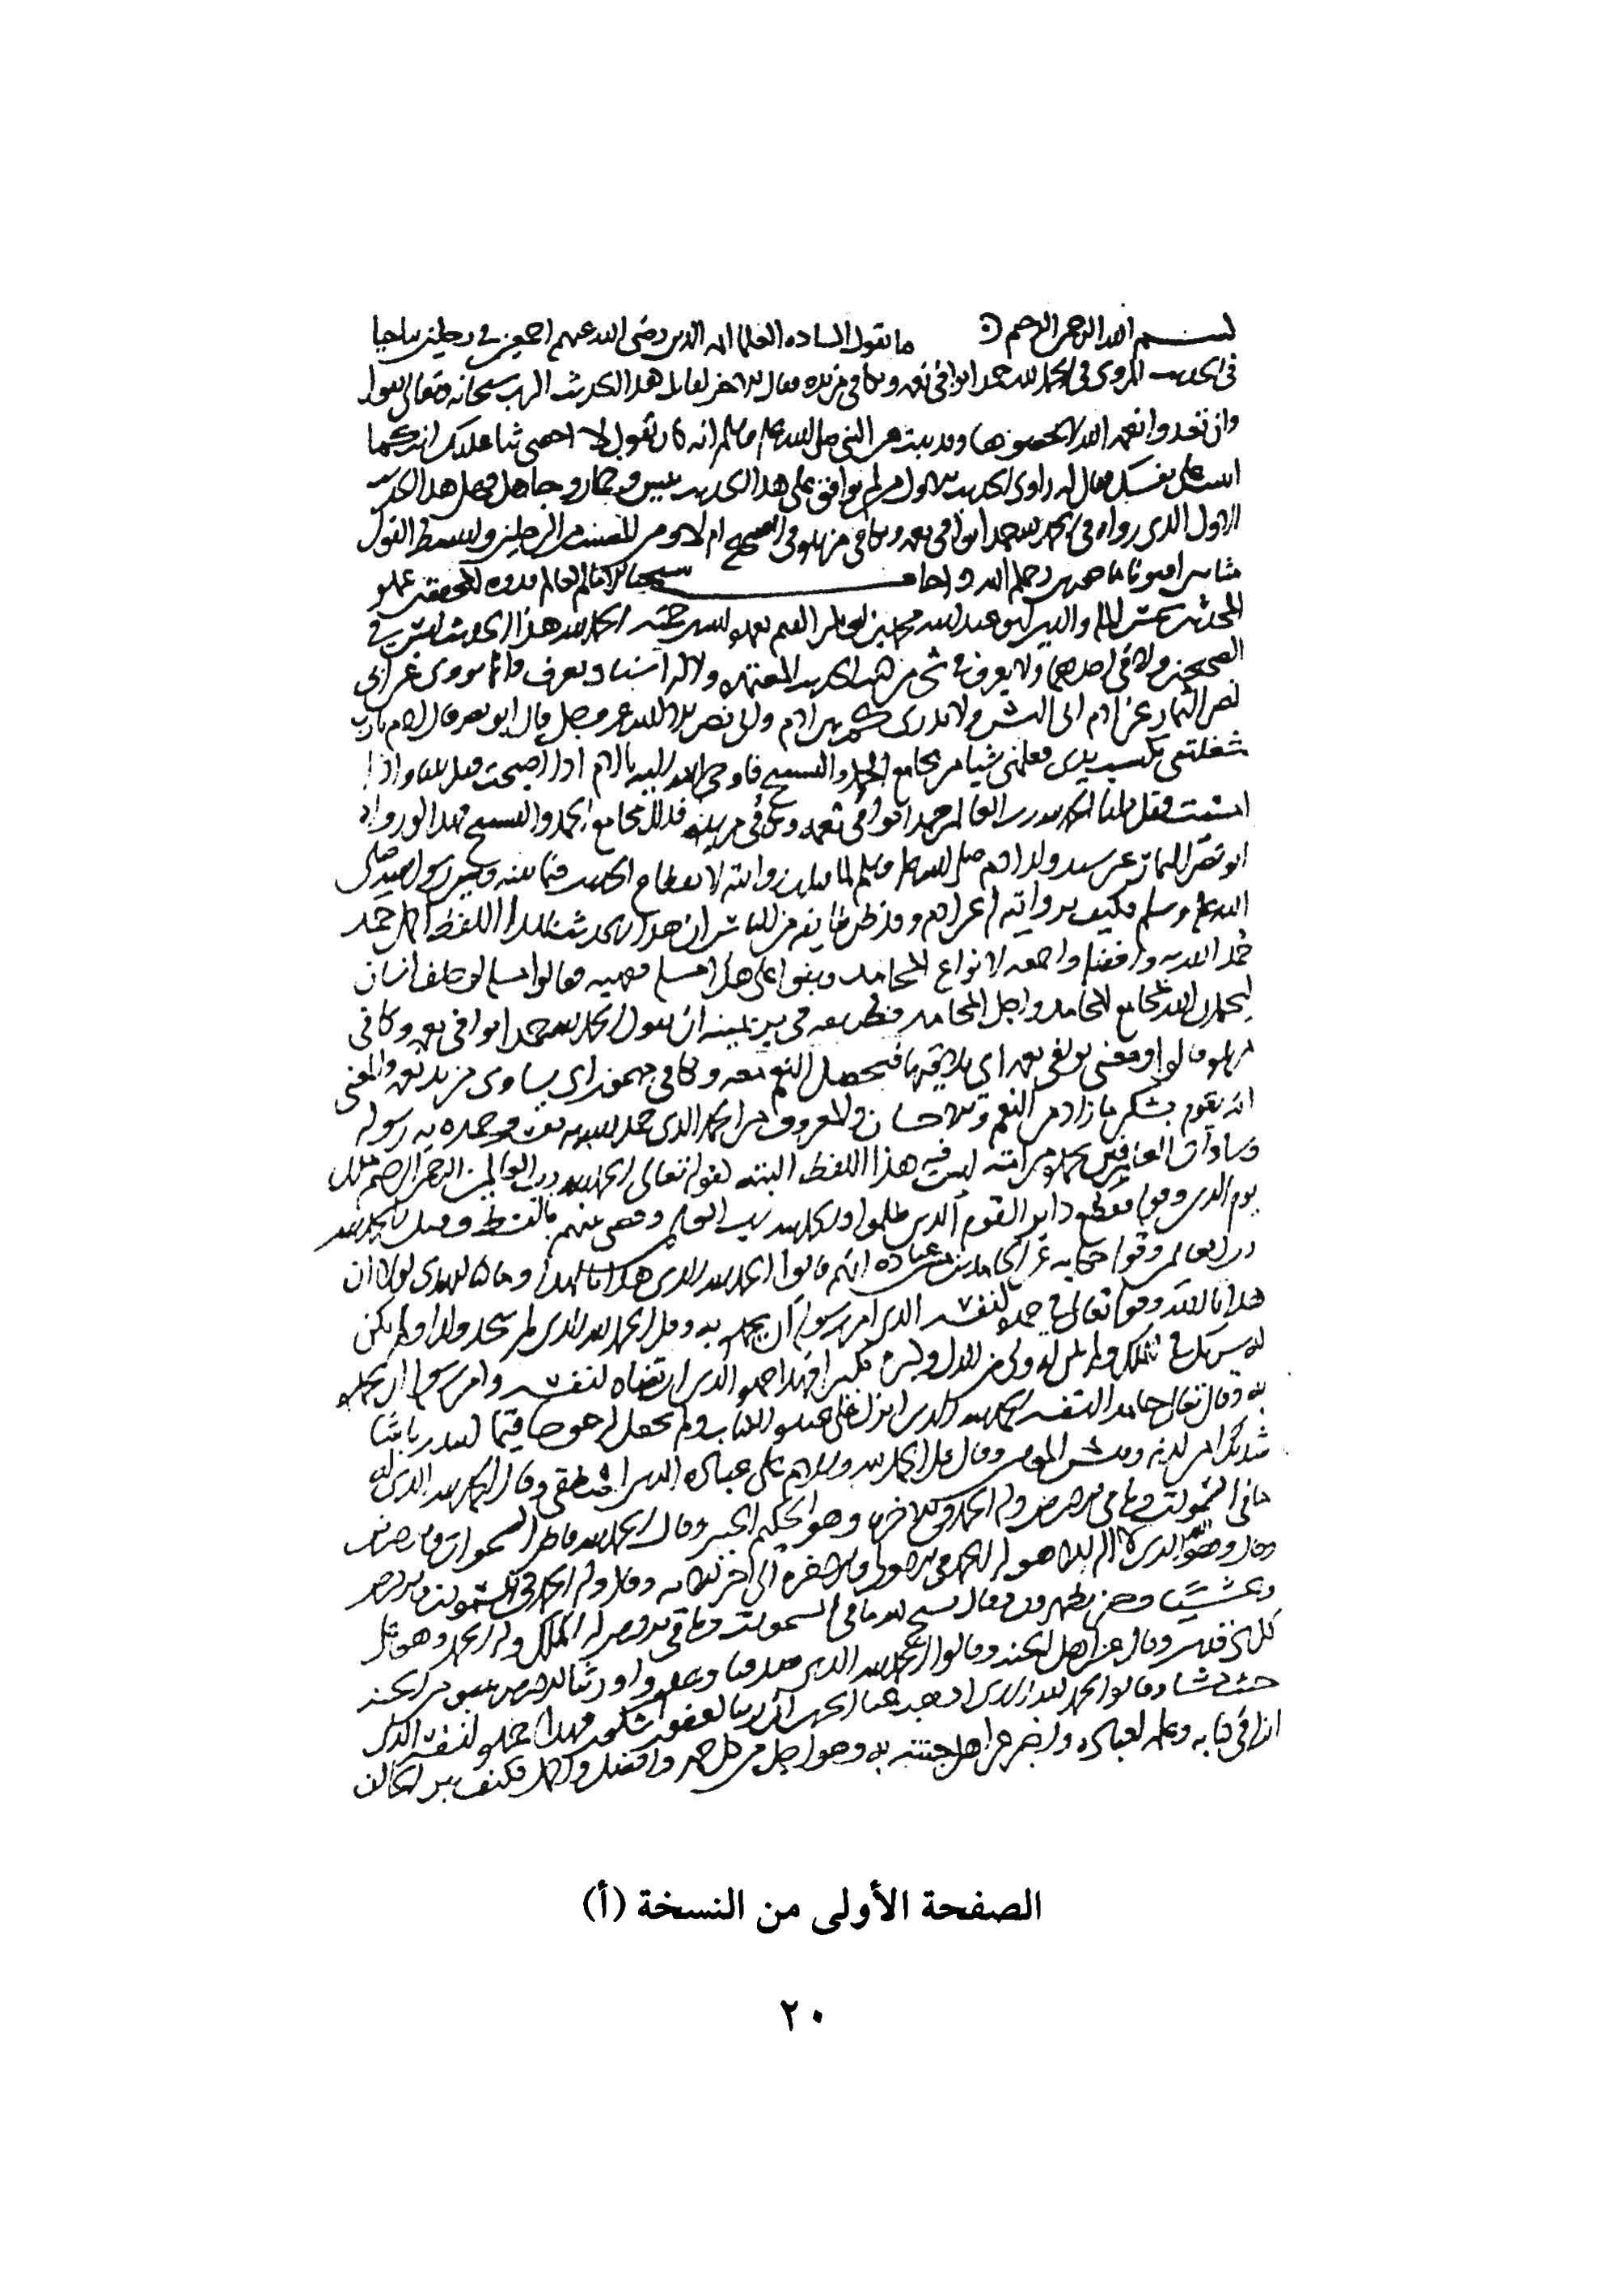 بسم الله الرحمن الرحيم ما تقول السادة العلما ايمه الدين رضي الله عنهم اجمعين في رجلين تباحثا
في الحديث المروي في الحمد لله حمدا يوافي نعمه ويكافي مزيده فقال الاخر لقايل هذا الحديث الرب سبحانه وتعالى يقول
وان تعدوا نعمه الله لا تحصوها وقد ثبت عن النبي صلى الله عليه وسلم انه كان يقول لا احصي ثنا عليك انت كما
اثنيت على نفسك فقال له راوي الحديث الاول من لم يوافق على هذا الحديث تيس وحمار وجاهل فهل هذا الحديث
الاول الذي رواه في الحمد لله حمدا يوافي نعمه ويكافي مزيده في الصحيح ام لا ومن المصيب من الرجلين وابسط القول
مثابين افتونا ماجورين رحمكم الله
المحدثين
الصحيحين ولا في احدهما ولا يعرف في شي من كتب الحديث المعتمده ولا له اسناد معروف وانما يروى عن ابي
نصر التمار عن ادم ابي البشر ولا يدرى كم بين ادم وابي نصر الا الله عز وجل قال ابو نصر قال ادم يارب
شغلتني بكسب يدي فعلمني شيا من مجامع الحمد والتسبيح فاوحى الله اليه يا ادم اذا اصبحت فقل ثلثا واذا
امسيت فقل ثلثا الحمد لله رب العالمين حمدا يوافي نعمه ويكافي مزيده فذلك مجامع الحمد والتسبيح فهذا لو رواه
ابو نصر التمار عن سيد ولد ادم صلى الله عليه وسلم لما قبلت روايته لانقطاع الحديث فيما بينه وبين رسول الله صلى
الله عليه وسلم فكيف بروايته له عن ادم وقد ظن طايفه من الناس ان هذا الحديث بهذا اللفظ اكمل حمد
حمد الله به وافضله واجمعه لانواع المحامد وبنوا على هذا مسله فقهيه فقالوا مسله لو حلف انسان
ليحمدن الله بمجامع المحامد واجل المحامد فطريقه في بر يمينه ان يقول الحمد لله حمدا يوافي نعمه ويكافي
مزيده قالوا ومعنى يوافي نعمه اي يلاقيها فتحصل النعم معه ويكافي مهموز اي يساوي مزيد نعمه والمعنى
انه يقوم بشكر ما زاد من النعم والاحسان والمعروف من الحمد الذي حمد الله به نفسه وحمده به رسوله
وسادات العارفين بحمده من امته ليس فيه هذا اللفظ البته كقوله تعالى الحمد لله رب العالمين الرحمن الرحيم ملك
يوم الدين وقوله فقطع دابر القوم الذين ظلموا والحمد لله رب العالمين وقضي بينهم بالقسط وقيل الحمد لله
رب العالمين وقوله حكايه عن الحامدين من عباده انهم قالوا الحمد لله الذي هدانا لهذا وما كنا لنهتدي لولا ان
هدانا الله وقوله تعالى في حمده لنفسه الذي امر رسوله ان يحمده به وقل الحمد لله الذي لم يتخذ ولدا ولم يكن
له شريك في الملك ولم يكن له ولي من الذل وكبره تكبيرا فهذا حمده الذي ارتضاه لنفسه وامر رسوله ان يحمده
به وقال تعالى حامدا لنفسه الحمد لله الذي انزل على عبده الكتاب ولم يجعل له عوجا قيما لينذر باسا
شديدا من لدنه ويبشر المومنين وقال قل الحمد لله وسلام على عباده الذين اصطفى وقال الحمد لله الذي له
ما في السموات وما في الارض وله الحمد في الاخره وهو الحكيم الخبير وقال الحمد لله فاطر السموات والارض
وقال وهو الله الذي لا اله الا هو له الحمد في الاولى والاخره الى اخر الايه وقال وله الحمد في السموات والارض
وعشيا وحين تظهرون وقال يسبح لله ما في السموات وما في الارض له الملك وله الحمد وهو على
كل شي قدير وقال عن اهل الجنه وقالوا الحمد لله الذي صدقنا وعده واورثنا الارض نتبوا من الجنه
حيث نشا وقالوا الحمد لله الذي اذهب عنا الحزن ان ربنا لغفور شكور فهذا حمده لنفسه الذي
انزله في كتابه وعلمه لعباده واخبر عن اهل جنته به وهو اجل من كل حمد وافضل واكمل فكيف يبر الحالف
الصفحة الأولى من النسخة (أ)
٢٠